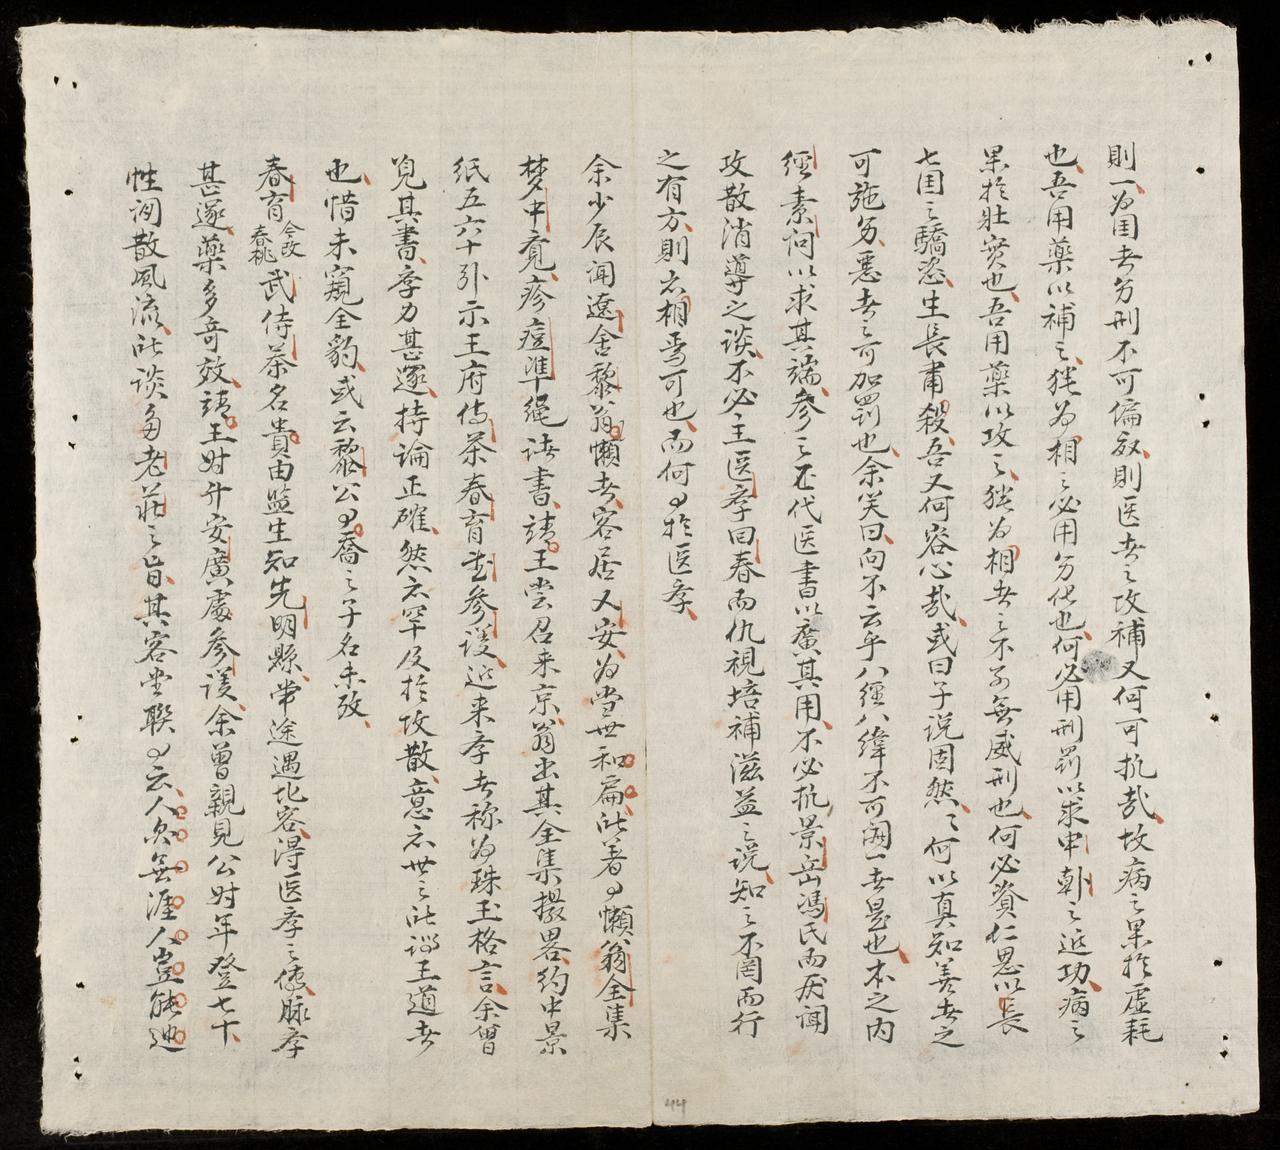 則一为国者劳刑不可偏敘則医者之攻補又何可抗哉故病之果於虚耗
也吾用藥以補之猶为相之必用劳徠也何必用刑罰以求申韩之近功病之
果於壮寔也吾用藥以攻之猶为相者之不可無威刑也何必資仁恩以長
七国之驕恣生長肅殺吾又何容心哉或曰子说固然然何以真知善者之
可施劳悪者之可加罰也余笑曰向不云乎八經八緯不可闕一者是也本之内
經素问以求其端参之歷代医書以廣其用不必抗景岳馮氏而厌闻
攻散消導之谈不必主医孝回春而仇視培補滋益之说知之不罔而行
之有方則右相焉可也而何有於医孝
余少辰闻遼舍黎翁懶者客居乂安为當世和扁所著有懶翁全集
梦中覚疹痘準繩諸書靖王尝召来京翁出其全集撮畧約中景
紙五六十引示王府侍茶春育武参護近来孝者称为珠玉格言余曽
見其書孝力甚邃持論正確然亦罕及於攻散意亦世之所謂王道者
也惜未窺全豹或云黎公有喬之子名未攷
春育今改春桃武侍茶名貴由監生知先明縣常途遇北客得医孝之傳脉孝
甚邃藥多奇效靖王时升安廣處参護余曾親見公时年登七十
性洞散風流所谈多老莊之旨其客堂聯有云人災無涯人豈能迯